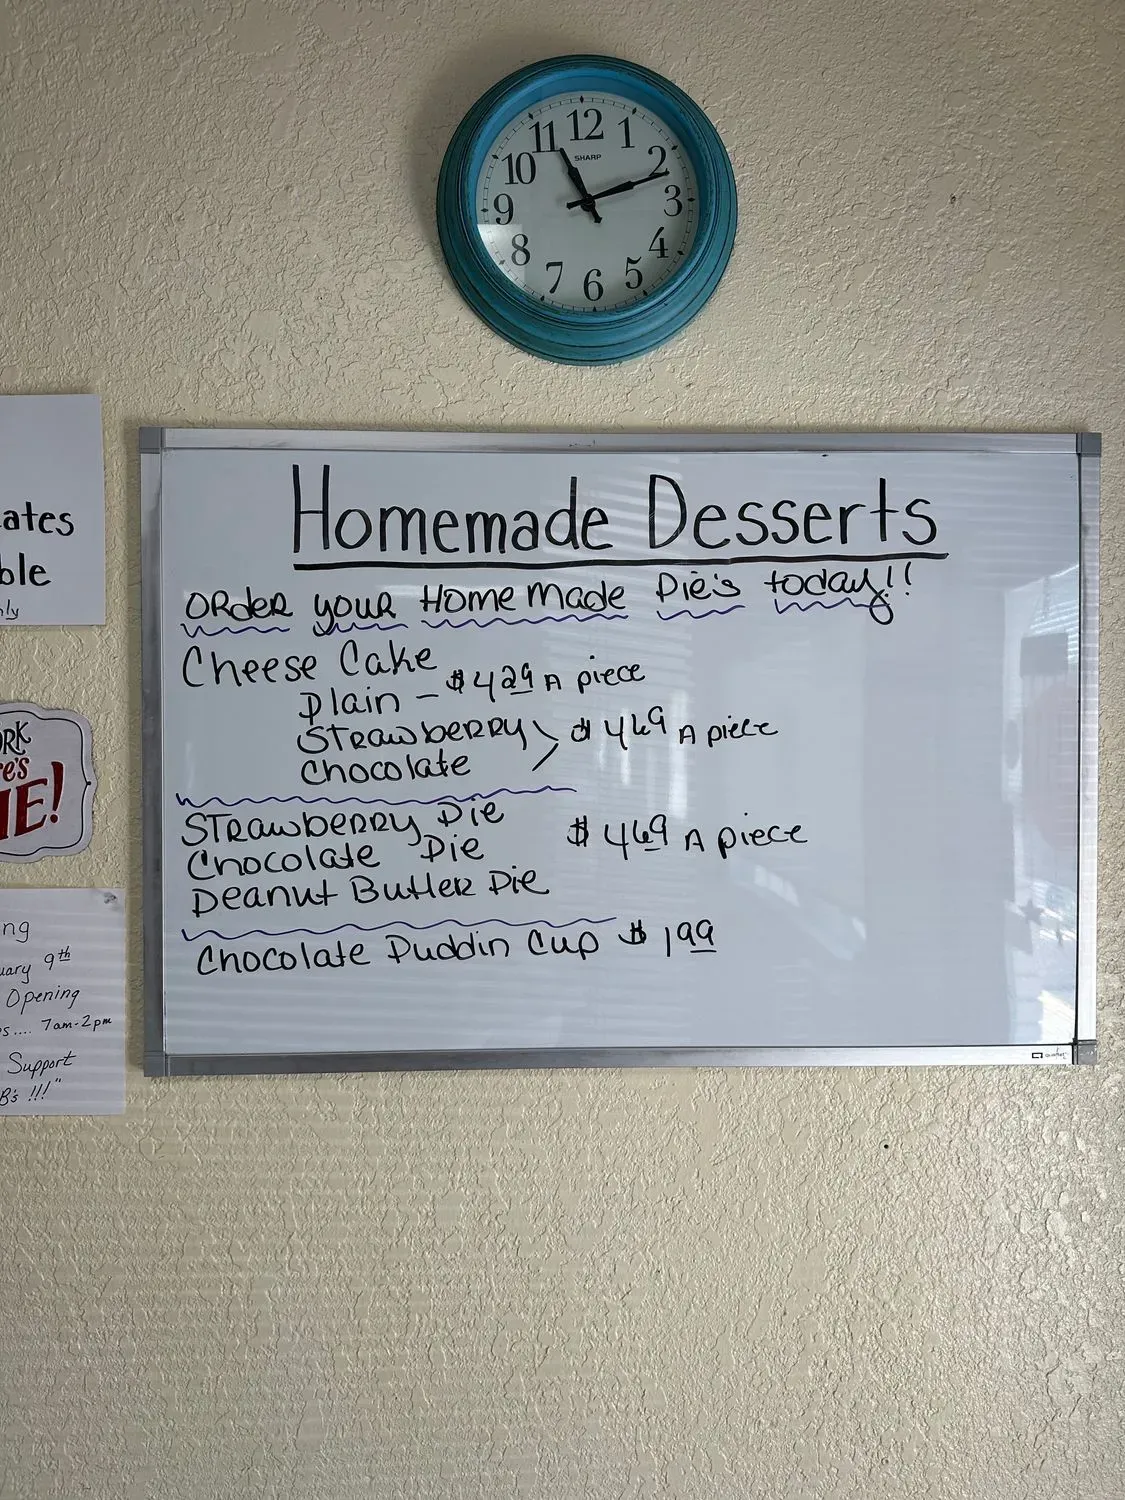 12
1
2
3
4
5
6
7
8
9
10
11
SHARP
Homemade Desserts
ORdeR youR Home made Pie's today!!
Cheese Cake
Plain - $4 29 A piece
STRawbeRRy
$ 4 69 A piece
Chocolate
STRawbeRRy Pie
Chocolate Pie
$ 4 69 A piece
Peanut ButteR Pie
Chocolate Puddin Cup $ 1 99
ates
ble
nly
ORK
re's
IE!
ng
uary 9th
Opening
s.... 7am-2pm
Support
B's !!!"